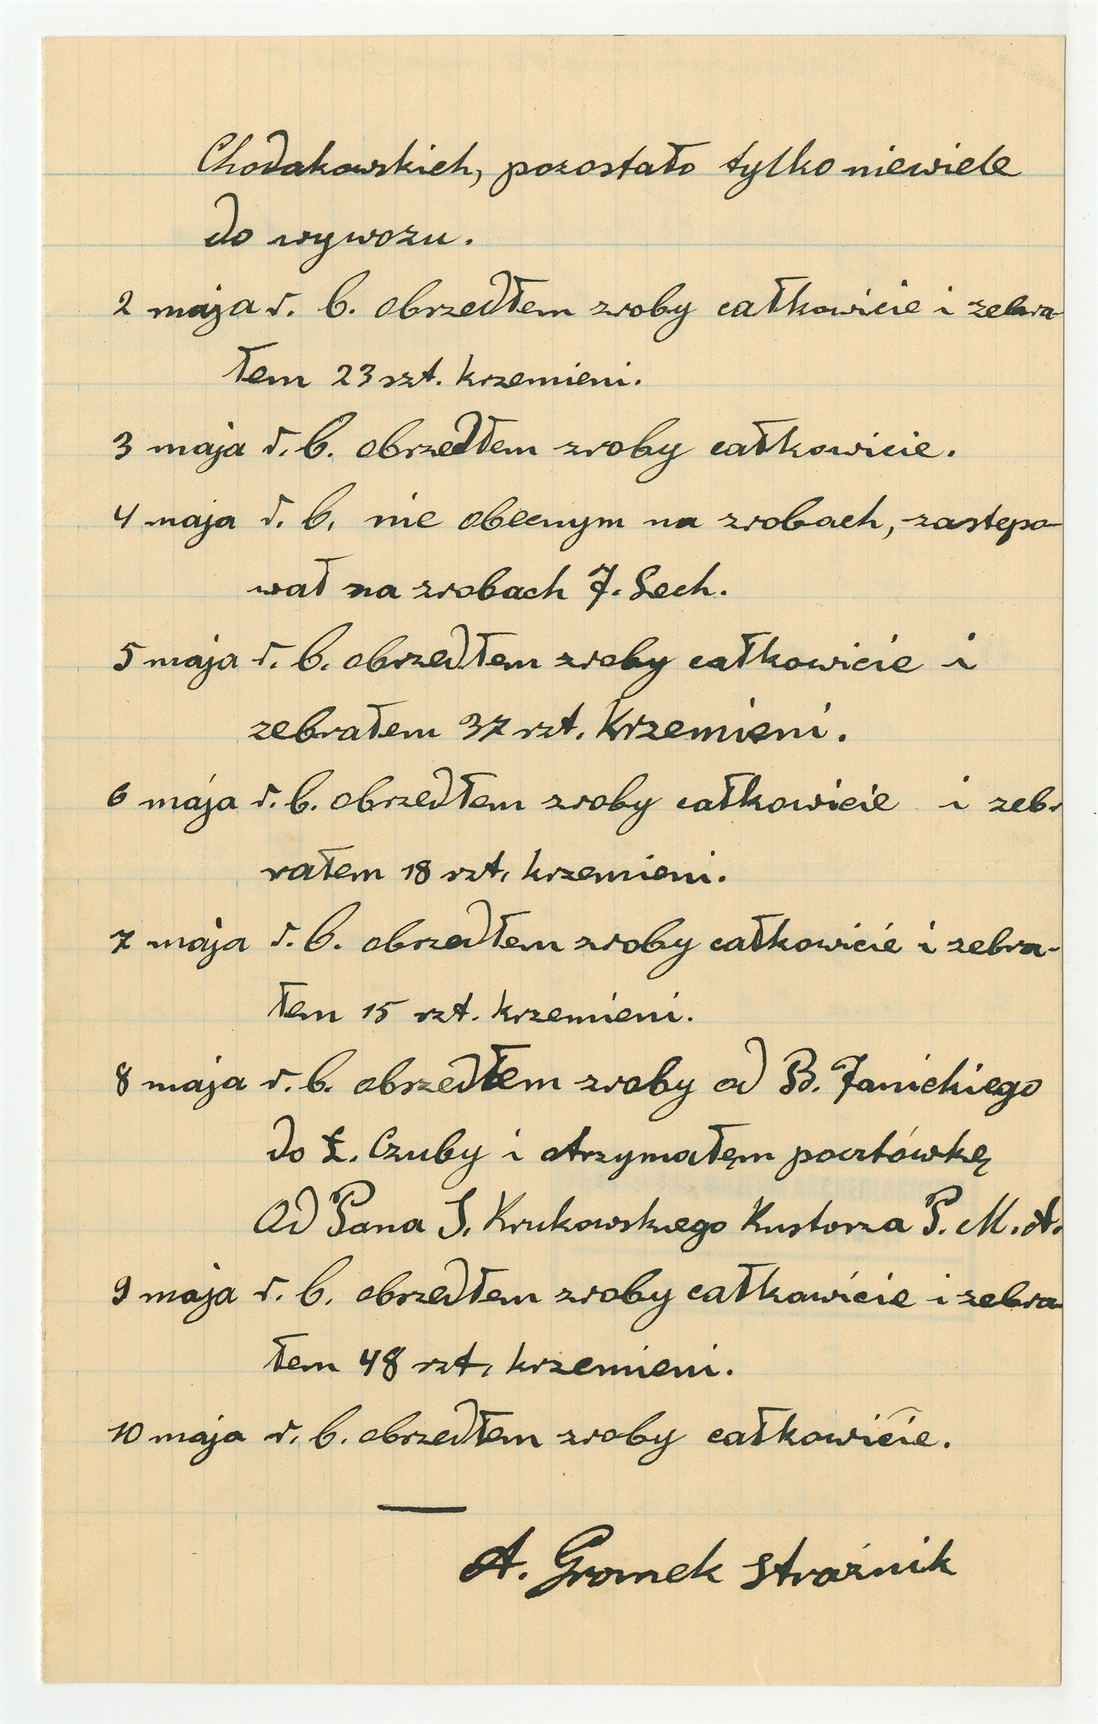 Chodakowskich, pozostało tylko niewiele
do wywozu.
2 maja r. b. obrzedłem zroby całkowicie i zebra-
łem 23 szt. krzemieni.
3 maja r. b. obrzedłem zroby całkowicie.
4 maja r. b. nie obecnym na zrobach, zastępo-
wał na zrobach J. Lech.
5 maja r. b. obrzedłem zroby całkowicie i
zebrałem 37 szt. krzemieni.
6 maja r. b. obrzedłem zroby całkowicie i zeb-
rałem 18 szt. krzemieni.
7 maja r. b. obrzedłem zroby całkowicie i zebra-
łem 15 szt. krzemieni.
8 maja r. b. obrzedłem zroby od B. Janickiego
do Ł. Czuby i otrzymałęm pocztówkę
Od Pana S. Krukowskiego Kustorza P. M. A.
9 maja r. b. obrzedłem zroby całkowicie i zebra
łem 48 szt. krzemieni.
10 maja r. b. obrzedłem zroby całkowicie.
A. Gromek strażnik